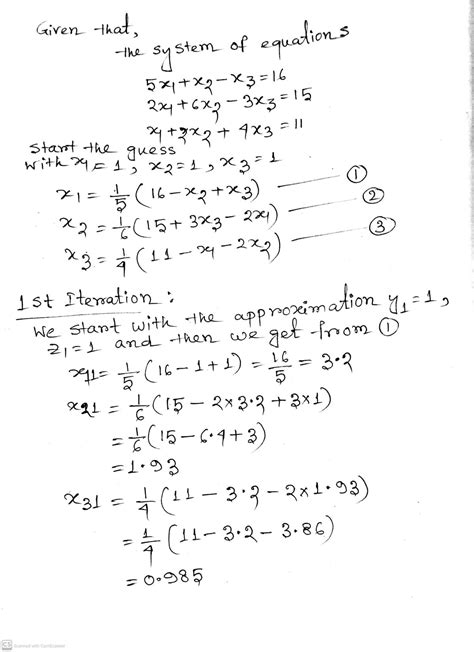 Given that,
the system of equations
5x₁+x₂-x₃=16
2x₁+6x₂-3x₃=15
x₁+2x₂+4x₃=11
Start the guess
with x₁=1, x₂=1, x₃=1
x₁=1/5(16-x₂+x₃) ①
x₂=1/6(15+3x₃-2x₁) ②
x₃=1/4(11-x₁-2x₂) ③
1st Iteration:
We start with the approximation y₁=1,
z₁=1 and then we get from ①
x₁₁=1/5(16-1+1)=16/5=3.2
x₂₁=1/6(15-2×3.2+3×1)
=1/6(15-6.4+3)
=1.93
x₃₁=1/4(11-3.2-2×1.93)
=1/4(11-3.2-3.86)
=0.985
CS Scanned with CamScanner